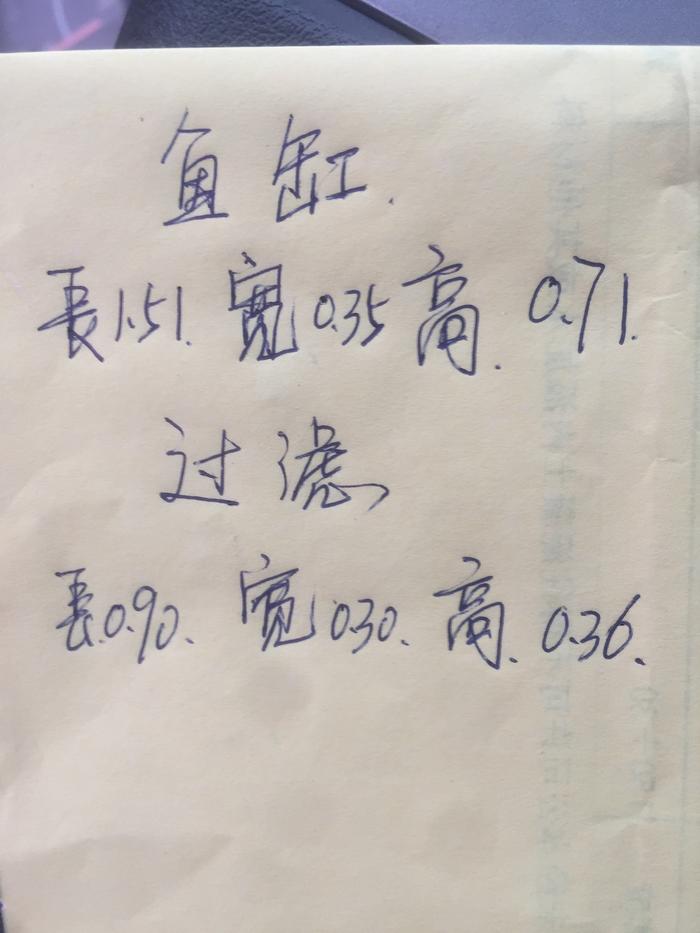 鱼缸.
長1.51.宽0.35高.0.71.
过滤
長.0.90.宽0.30.高.0.36.